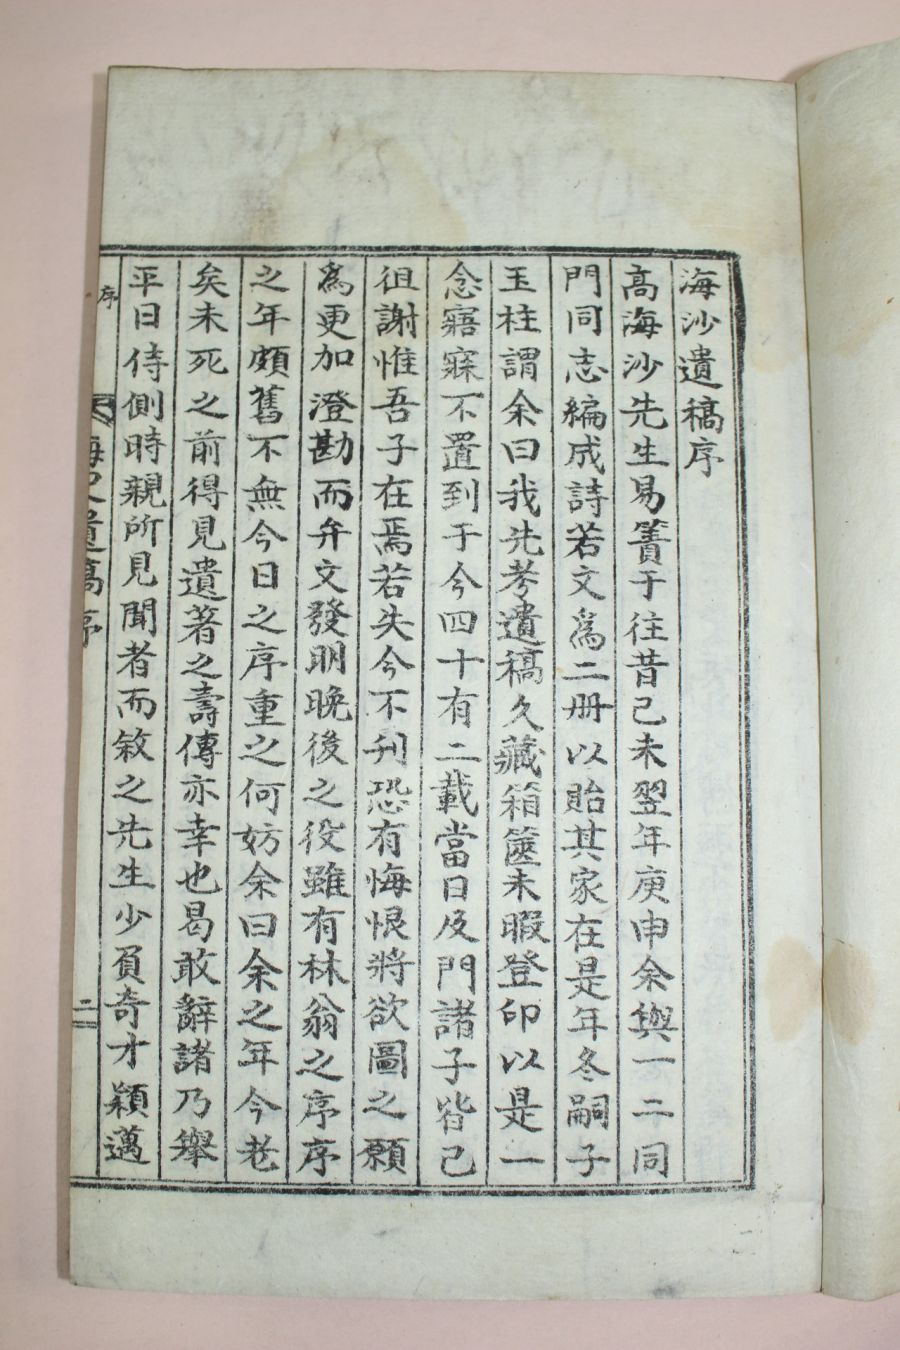 海沙遺稿序
高海沙先生易簀于往昔己未翌年庚申余與一二同
門同志編成詩若文爲二册以貽其家在是年冬嗣子
玉柱謂余曰我先考遺稿久藏箱篋未暇登印以是一
念寤寐不置到于今四十有二載當日及門諸子皆已
徂謝惟吾子在焉若失今不刋恐有悔恨將欲圖之願
爲更加澄勘而弁文發明晩後之役雖有林翁之序序
之年頗舊不無今日之序重之何妨余曰余之年今老
矣未死之前得見遺著之壽傳亦幸也曷敢辭諸乃擧
平日侍側時親所見聞者而敘之先生少負奇才穎邁
序
海沙遺稿序
二